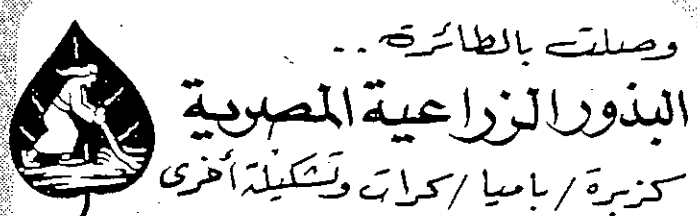 وصلت بالطائرة ..
البذور الزراعية المصرية
كزبرة / باميا / كرات وتشكيلة أخرى